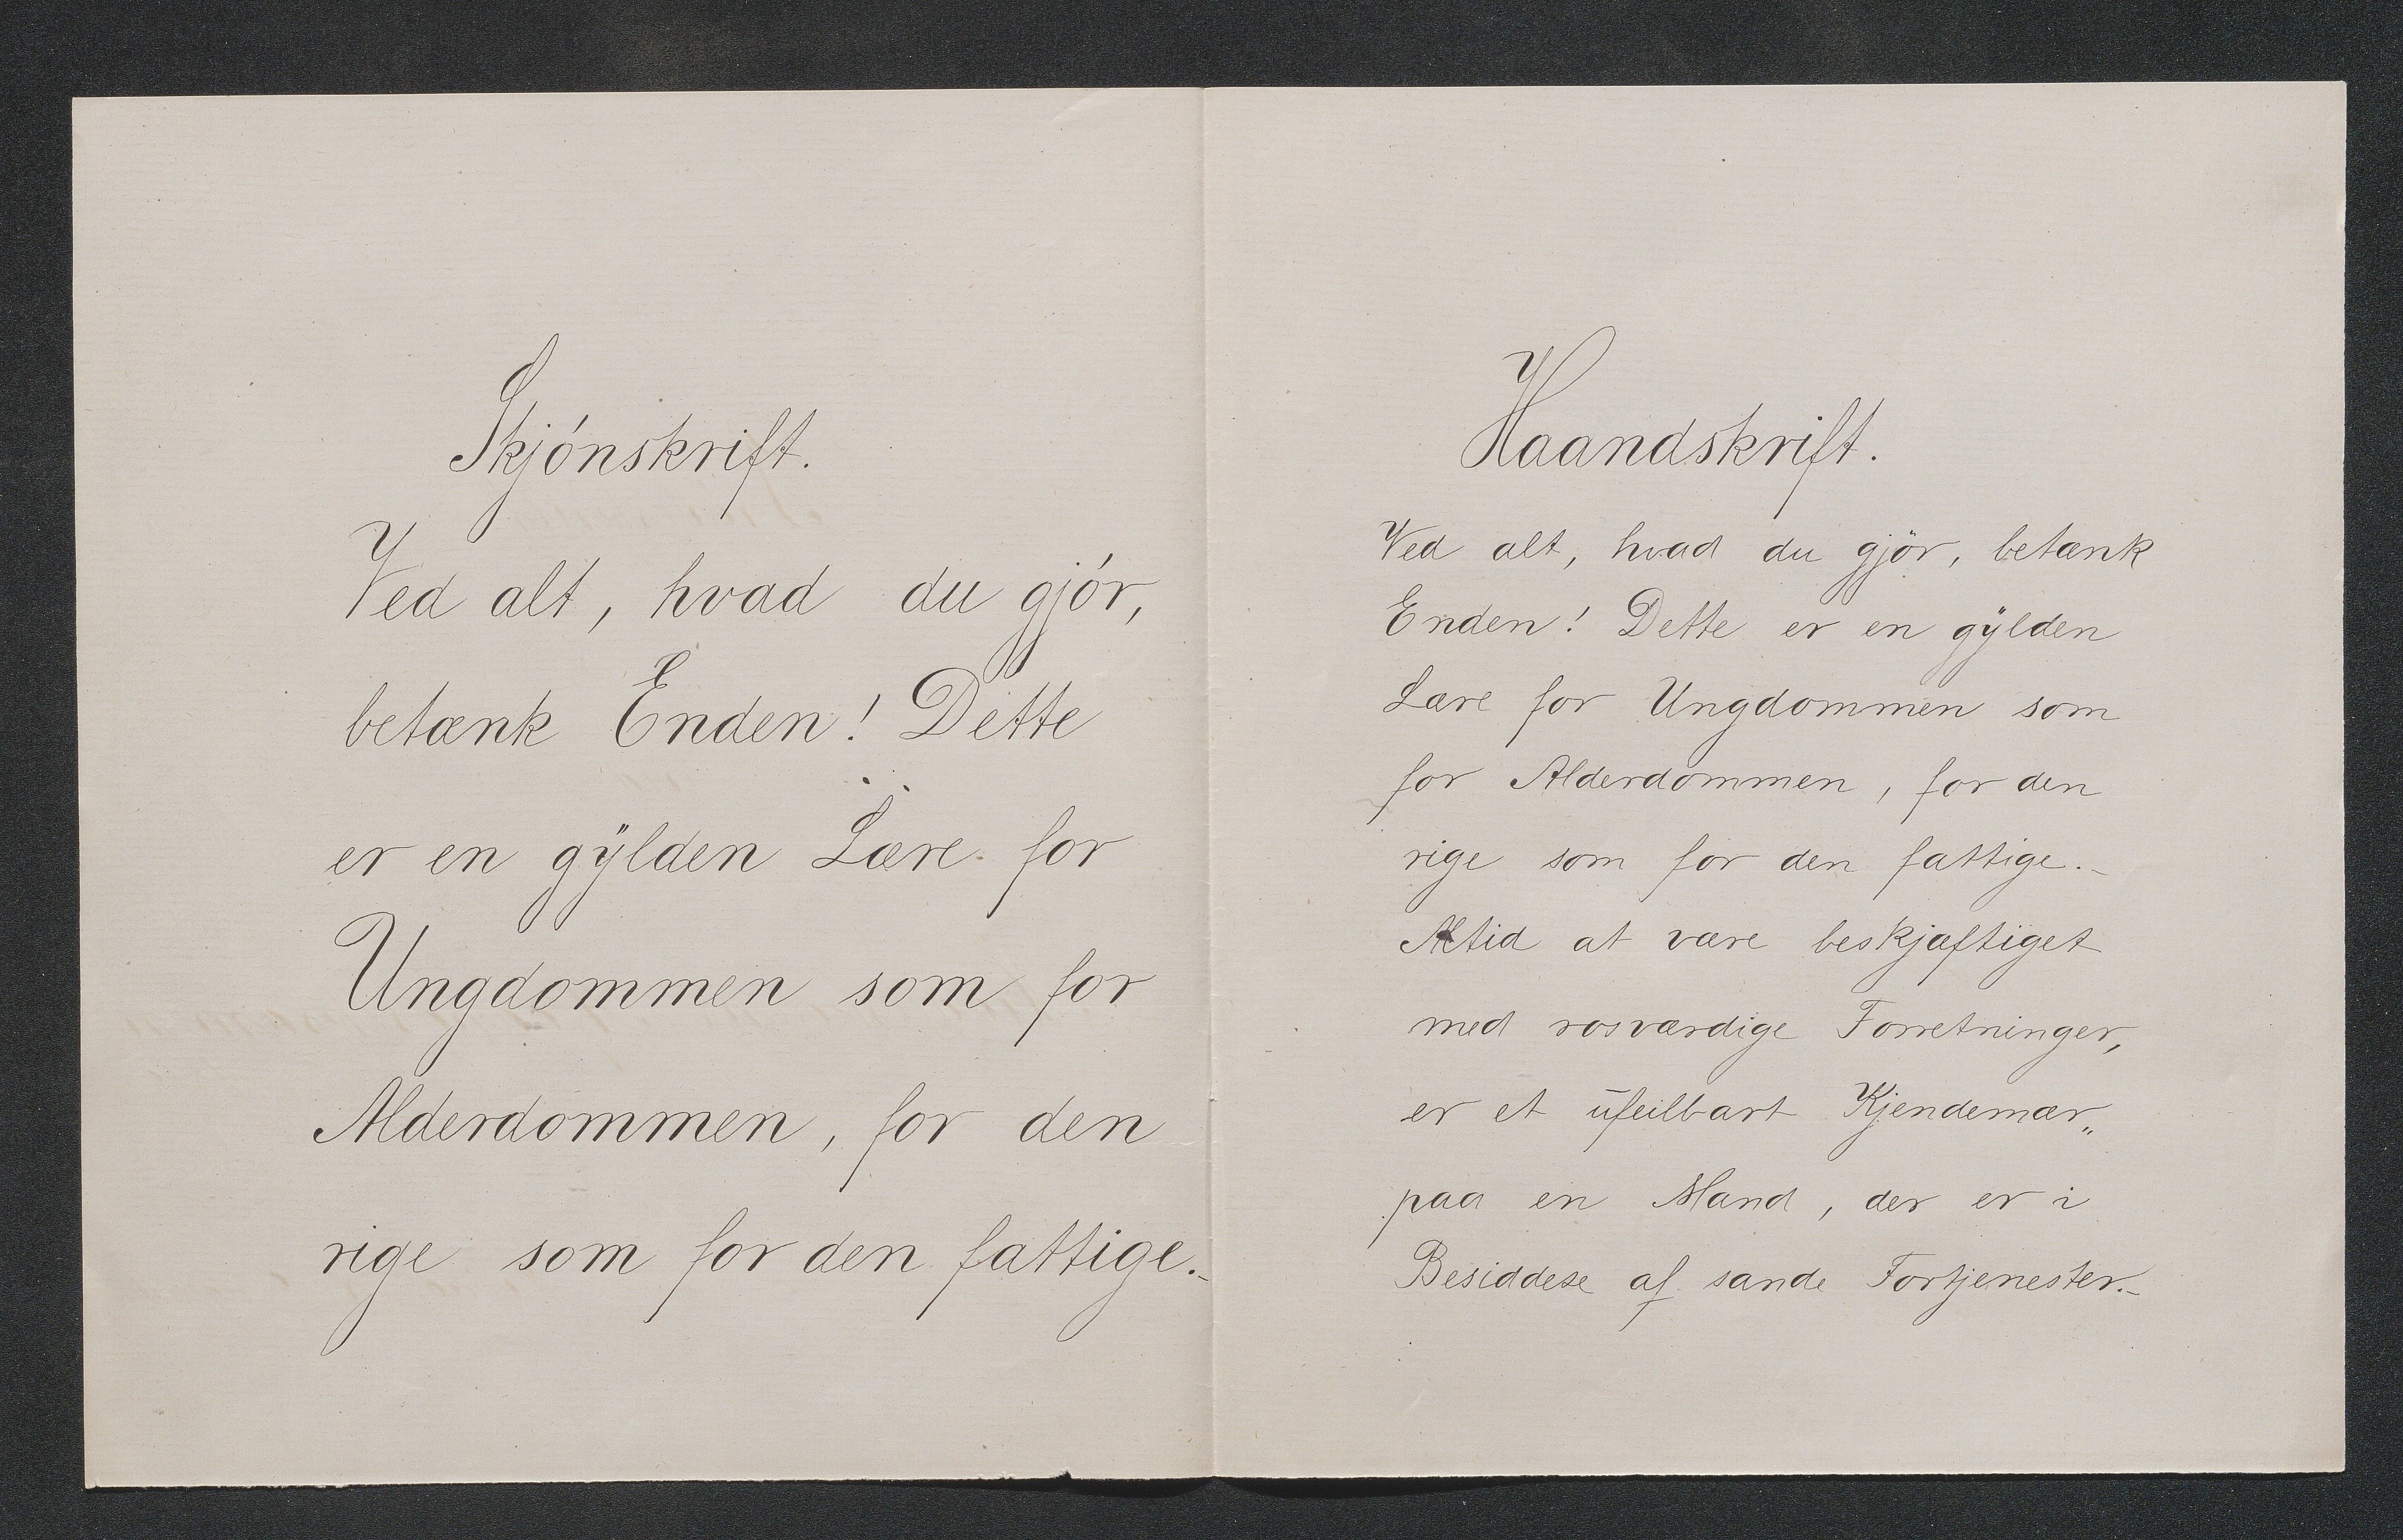 Skjónskrift.
Ved alt, hvad du gjór,
betænk Enden! Dette
er en gÿlden Lære for
Ungdommen som for
Alderdommen, for den
rige som for den fattige.-
Haandskrift.
Ved alt, hvad du gjör, betænk
Enden! Dette er en gÿlden
Lære for Ungdommen som
for Alderdommen, for den
rige som for den fattige.-
Altid at være beskjæftiget
med rosværdige Forretninger,
er et ūfeilbart Kjendemær„
paa en Mand, der er i
Besiddese af sande Fortjenester.-